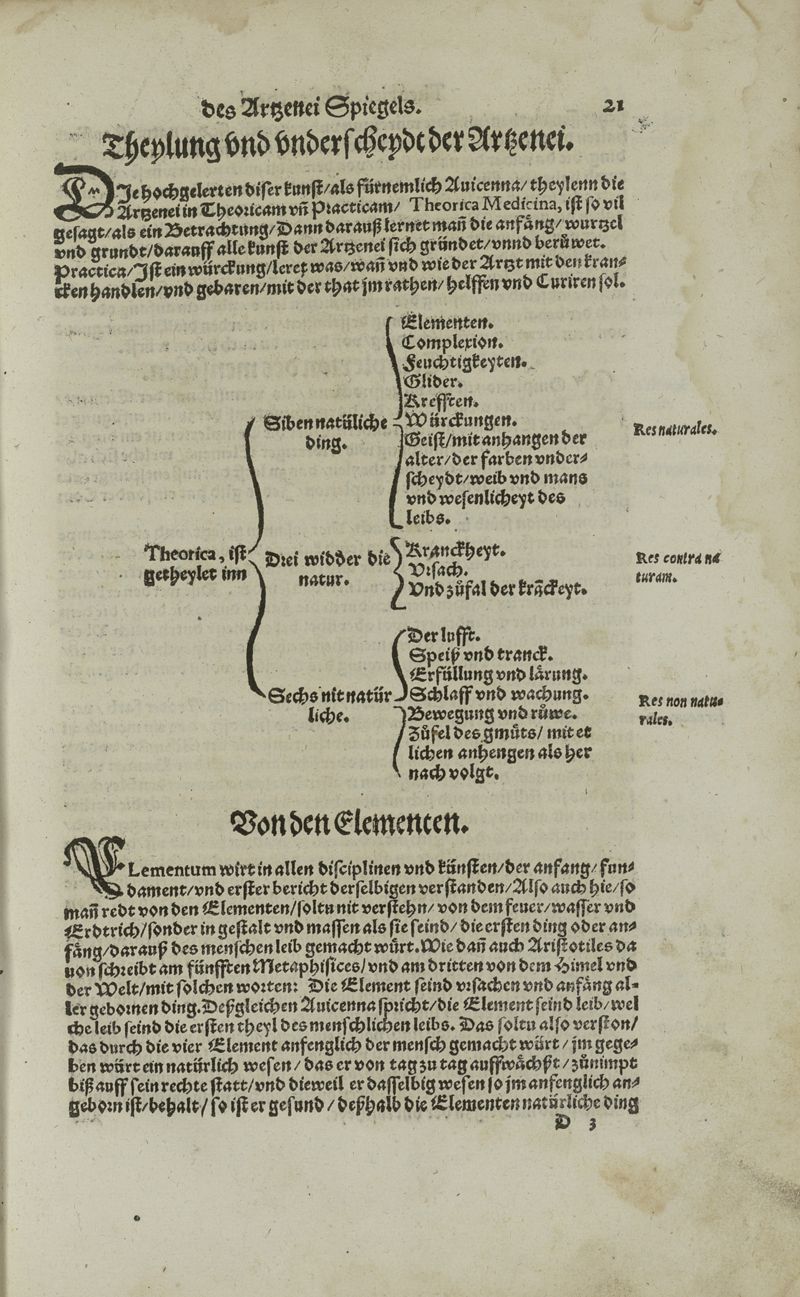 des Artzenei Spiegels. 21
Theylung vnd vnderscheydt der Artzenei.
DIe hochgelerten diser kunst/als fürnemlich Auicenna/theylenn die
Artzenei in Theoricam vñ Practicam/ Theorica Medicina, ist so vil
gesagt/als ein Betrachtung/Dann darauß lernet mañ die anfäng/wurtzel
vnd grundt/darauff alle kunst der Artzenei sich gründet/vnnd berůwet.
Practica/Jst ein würckung/leret was/wañ vnd wie der Artzt mit den kran⸗
cken handlen/vnd gebaren/mit der that jm rathen/helffen vnd Curiren sol.
Theorica, ist
getheylet inn
Siben natüliche
ding.
Elementen.
Complexion.
Feuchtigkeyten.
Glider.
Krefften.
Würckungen.
Geist/mit anhangen der
alter/der farben vnder⸗
scheydt/weib vnd mans
vnd wesenlicheyt des
leibs.
Res naturales.
Drei widder die
natur.
Kranckheyt.
Vrsach.
Vnd zůfal der krãckeyt.
Res contra na
turam.
Sechs nit natür
liche.
Der lufft.
Speiß vnd tranck.
Erfüllung vnd lärung.
Schlaff vnd wachung.
Bewegung vnd růwe.
Zůfel des gmůts/ mit et
lichen anhengen als her
nach volgt.
Res non natu⸗
rales.
Von den Elementen.
ELementum wirt in allen disciplinen vnd künsten/der anfang/fun⸗
dament/vnd erster bericht derselbigen verstanden/Also auch hie/so
mañ redt von den Elementen/soltu nit verstehn/von dem feuer/wasser vnd
Erdtrich/sonder in gestalt vnd massen als sie seind/die ersten ding oder an⸗
fäng/darauß des menschen leib gemacht würt. Wie dañ auch Aristotiles da
uon schreibt am fünfften Metaphisices/vnd am dritten von dem Himel vnd
der Welt/mit solchen worten: Die Element seind vrsachen vnd anfäng al⸗
ler gebornen ding. Deßgleichen Auicenna spricht/die Element seind leib/wel
che leib seind die ersten theyl des menschlichen leibs. Das soltu also verston/
das durch die vier Element anfenglich der mensch gemacht würt/ jm gege⸗
ben würt ein natürlich wesen/das er von tag zu tag auffwächßt/zůnimpt
biß auff sein rechte statt/vnd dieweil er dasselbig wesen so jm anfenglich an⸗
geborn ist/behalt/ so ist er gesund/deßhalb die Elementen natürliche ding
D 3